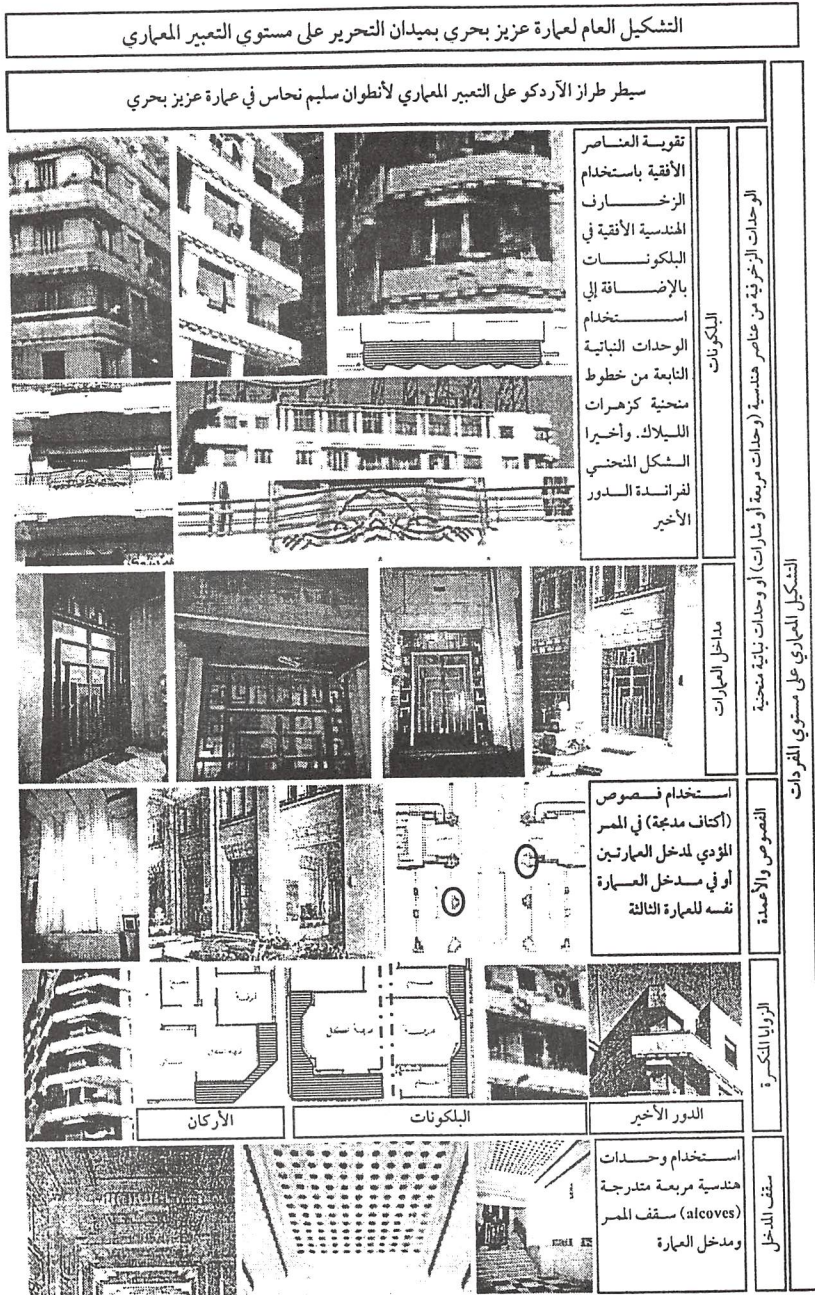 التشكيل العام لعمارة عزيز بحري بميدان التحرير على مستوي التعبير المعماري
سيطر طراز الآردكو على التعبير المعماري لأنطوان سليم نحاس في عمارة عزيز بحري
التشكيل المعماري على مستوي المفردات
الوحدات الزخرفية من عناصر هندسية (وحدات مربعة أو شارات) أو وحدات نباتية منحنية
البلكونات
تقوية العناصر
الأفقية باستخدام
الزخارف
الهندسية الأفقية في
البلكونات
بالإضافة إلي
استخدام
الوحدات النباتية
النابعة من خطوط
منحنية كزهرات
الليلاك. وأخيرا
الشكل المنحني
لفراندة الدور
الأخير
مداخل العمارات
الفصوص والأعمدة
استخدام فصوص
(أكتاف مدمجة) في الممر
المؤدي لمدخل العمارتين
أو في مدخل العمارة
نفسه للعمارة الثالثة
الزوايا المنكسرة
الدور الأخير
البلكونات
الأركان
سقف المدخل
استخدام وحدات
هندسية مربعة متدرجة
(alcoves) سقف الممر
ومدخل العمارة